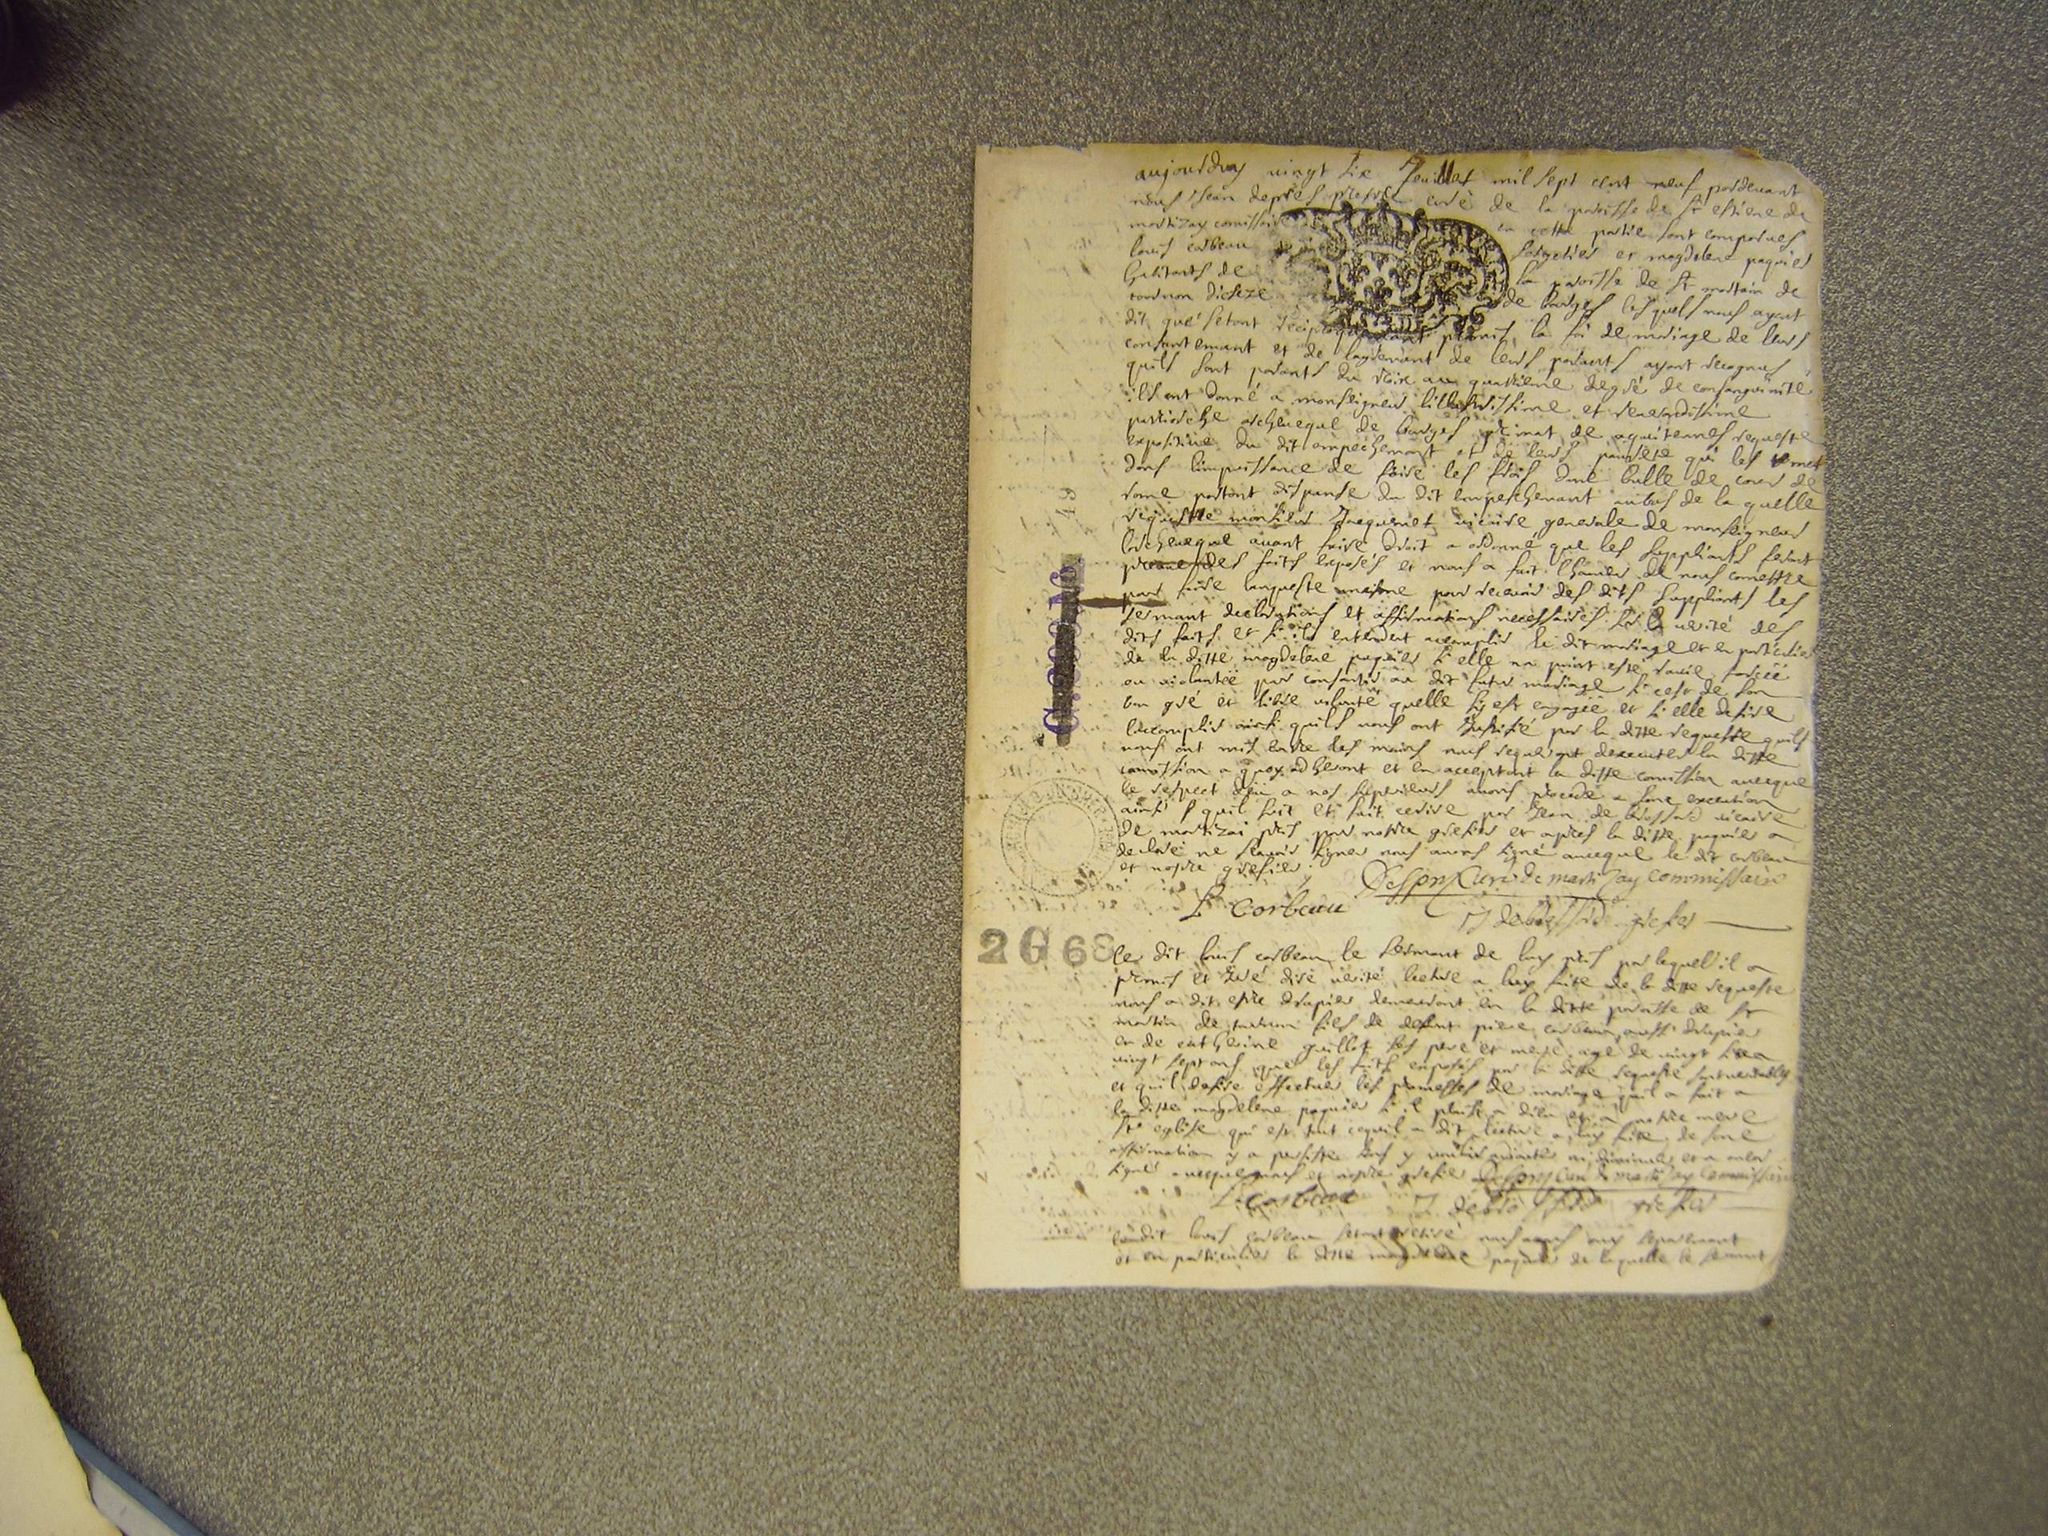 aujourduy vingt six Jeuillet mil sept cent neuf pardevant
nous Jean deprés prestre curé de la paroisse de St estiene de
martizay comissaire en cette partie sont comparues
louis corbeau sergetier et magdelene paquier
habitants de la paroisse de St martin de
tournon dioceze de bourges lesquels nous ayant
dit que s'etant reciproquement promis la foi de mariage de leurs
consantemant et de lagremant de leurs parants ayant recognus
quils sont parants du trois au quatrieme degré de consanguinité
ils ont donné a monseigneur lillustrissime et reverandissime
patriarche archeveque de bourges primat de aquitennes requeste
expositive du dit empechemant et de leurs pauvrete qui les met
dans limpuissance de faire les frais dune bulle de cour de
rome portant dispanse du dit empeschemant au bas de la quelle
requeste monsieur vicaire generale de monseigneur
larcheveque avant faire droit a ordonné que les suppliants feront
preuve des faits exposés et nous a fait lhonneur de nous comettre
pour faire lanqueste mesme pour recevoir des dits suppliants les
sermant declarations et affirmations necessaires sur la verité des
dits faits et s'ils entendent acomplir le dit mariage et en particulier
de la ditte magdelene paquier si elle na point esté ravie forcée
ou violantée pour consantir au dit futur mariage si cest de son
bon gré et libre volonté quelle sy est engagée et si elle desire
lacomplir ainsi quils nous ont justifié par la ditte requeste quils
nous ont mis entre les mains nous requerant dexecuter la ditte
comission a quoy adherant et en acceptant la ditte comission avecque
le respect deu a nos superieurs avons procedé a son execution
ainsi s quil suit et fait ecrire par Jean de brossard vicaire
de martizai pris pour nostre grefier et apres la ditte paquier a
declaré ne scavoir signer nous avons signé avecque le dit corbeau
et nostre grefier
Desprez curé de martizay commissaire
L Corbeau
J debrossard grefier
2G 68
le dit louis corbeau le sermant de luy pris par lequel il a
promis et juré dire verité lecture a luy faite de la ditte requeste
nous a dit estre drapier demeurant en la ditte paroisse de St
martin de tournon fils de defunt piere corbeau aussi drapier
et de catherine guillot ses pere et mere agé de vingt six a
vingt sept ans que les faits exposés par la ditte requeste sont veritables
et quil desire effectuer les promesses de mariage quil a fait a
la ditte magdelene paquier s'il plaist a dieu et a nostre mere
Ste eglise qui est tout cequil a dit lecture a luy faite de sone
affirmation y a persisté sans y vouloir adjouter ni diminuer et a
signé avecque nous et nostre grefier Desprez curé de martizay Commissaire
L Corbeau
J debrossard grefier
ledit louis corbeau setant retiré nous avons ouy separemant
et en particulier la ditte magdelene paquier de laquelle le sermant